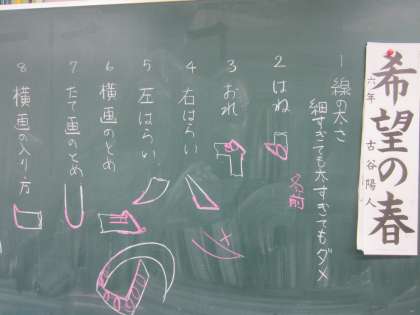 希望の春
六年 古谷陽人
1 線の太さ
細すぎても太すぎてもダメ
名前
2 はね
3 おれ
4 右はらい
5 左はらい
6 横画のとめ
7 たて画のとめ
8 横画の入り方